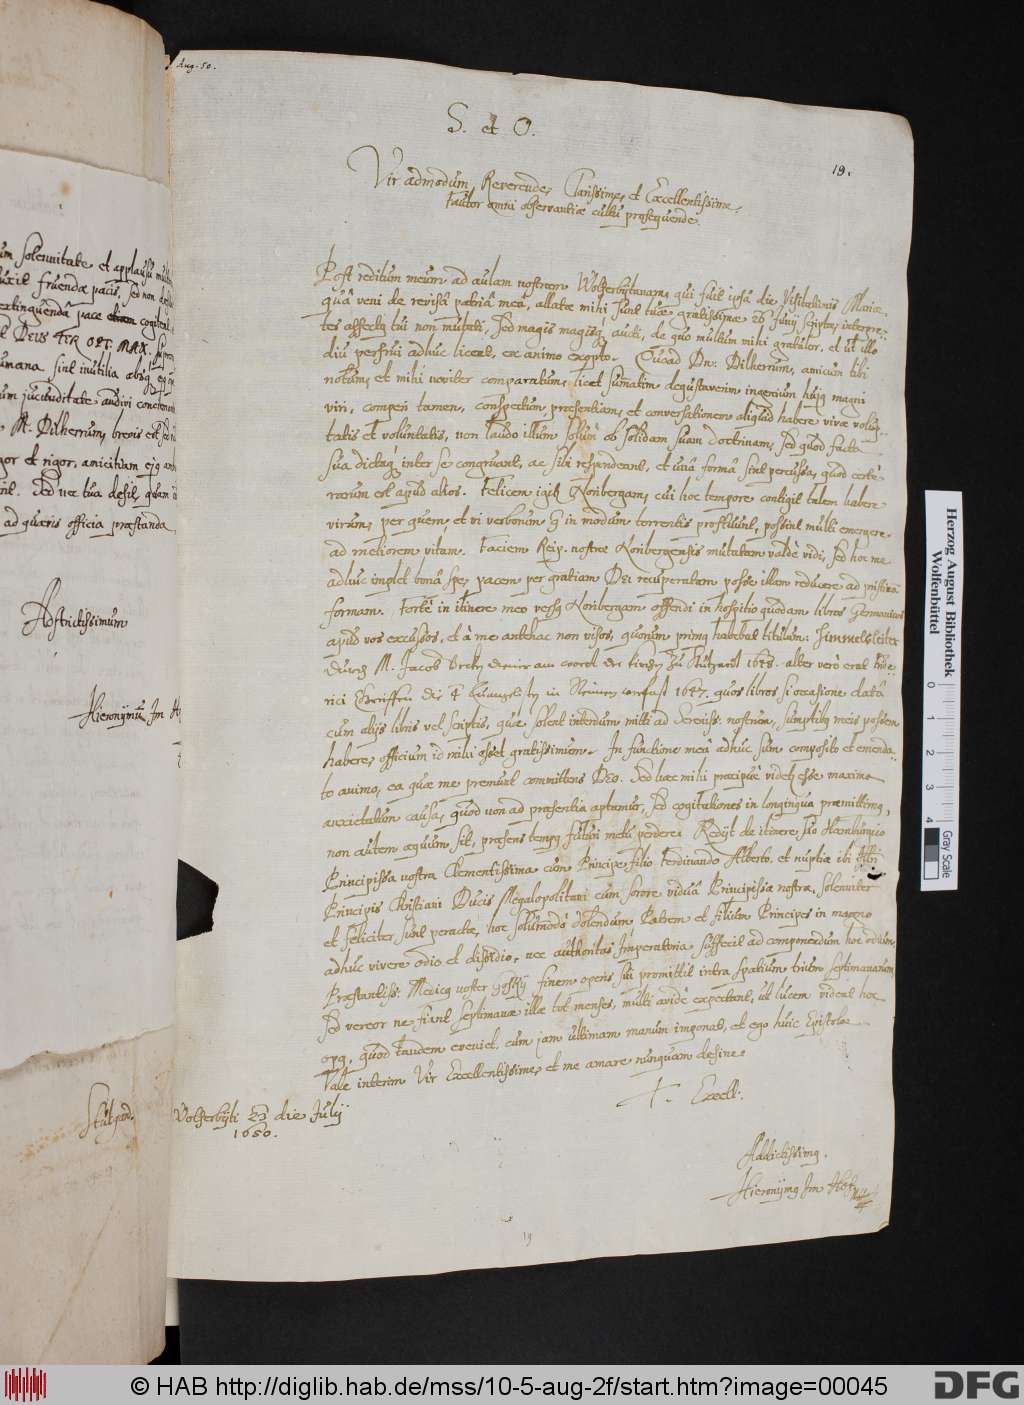 Aug. 50.
S. et O.
19.
Vir admodum Reverende, Clarissime, et Excellentissime,
Fautor omni observantiæ cultu prosequende.
Post reditum meum ad aulam nostram Wolferbytanam, qui fuit ipsa die Visitationis Mariæ,
quâ veni de revisâ patriâ meâ, allatæ mihi sunt tuæ gratissimæ 26 Junij scriptæ, interpre-
tes affectq tui non mutati, sed magis magisq aucti, de quo multum mihi gratulor, et ut illo
diu perfrui adhuc liceat, ex animo exopto. Quoad Dn. Dilherrum, amicum tibi
notum, et mihi noviter comparatum, licet summatim degustaverim ingenium hujq magni
viri, comperi tamen, conspectum, præsentiam, et conversationem aliquid habere vivæ volup-
tatis et voluntatis, non laudo illum solum ob solidam suam doctrinam, sed quod facta
sua dictaq inter se congruant, ac sibi respondeant, et unâ formâ sint percussa, quod certè
rarum est apud altos. Felicem igitur Noribergam, cui hoc tempore contigit talem habere
virum, per quem, et vi verborum q in modum torrentis profluunt, possint multi emergere
ad meliorem vitam. Faciem Reip. nostræ Noribergensis mutatam valdè vidi, sed hoc me
adhuc implet bonâ spe, pacem per gratiam DEI recuperatam posse illam reducere ad pristinam
formam. Fortè in itinere meo versq Noribergam offendi in hospitio quodam libros Germanicos
apud vos excussos, et à me antehac non visos, quorum primq habebat titulum: Himmelsleiter
durch M. Jacob 1648. alter verò erat
1647. quos libros si occasione datâ
cum alijs libris vel scriptis, quæ solent interdum mitti ad Sereniss: nostrum, sumptibq meis possem
habere, officium id mihi esset gratissimum. In functione meâ adhuc sum composito et emenda-
to animo, ea quæ me premunt committens DEO. Sed hæc mihi præcipuè videtur esse maxima
anxietatum causa, quod non ad præsentia aptamur, sed cogitationes in longinqua præmittimq,
non autem æquum sit, præsens tempq futuri metu perdere. Redijt de itinere suo Hamburgico
Principissa nostra Clementissima cum Principe filio Ferdinando Alberto, et nuptiæ ibi
Principis Christiani Ducis Megalopolitani cum sorore viduâ Principissæ nostræ, solenniter
et feliciter sunt peractæ, hoc solummodò dolendum Patrem et filium Principes in magno
adhuc vivere odio et dissidio, nec authoritas Imperatoria suffecit ad componendum hoc odium.
Præstantiss: Medicq noster finem operis sui promittit intra spatium trium septimanarum,
sed vereor ne fiant septimanæ illæ tot menses, multi avidè expectant, ut lucem videat hoc
opq, quod tandem eveniet. cum jam ultimam manum imponat, et ego huic Epistolæ
Vale interim Vir Excellentissime, et me amare nunquam desine.
T. Excell:
Wolferbyti 23 die Julij
1650.
Addictissimq.
Hieronymq Im Hof
19
um solennitate et applausu
fruendæ pacis, sed non
extinguendâ pace etiam cogitent
DEUS TER OPT. MAX.
humana sint inutilia absq
um jucunditate audivi
M. Dilherrum, brevis est
gor et rigor, amicitiam ejq
Sed nec tua desit, quam
ad quævis officia præstanda
Adstrictissimum
Hieronymum Im H
Stutgard.
Herzog August Bibliothek
Wolfenbüttel
0 1 2 3 4
Gray Scale
© HAB http://diglib.hab.de/mss/10-5-aug-2f/start.htm?image=00045
DFG